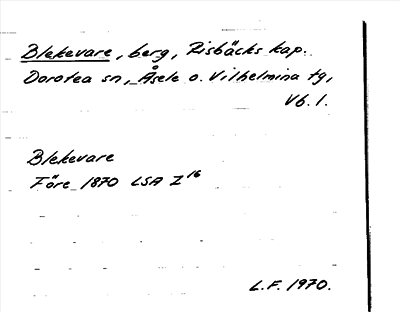 Blekevare, berg, Risbäcks kap.
Dorotea sn, Åsele o. Vilhelmina tg,
Vb. l.
Blekevare
Före 1870 LSA Z 16
L.F. 1970.